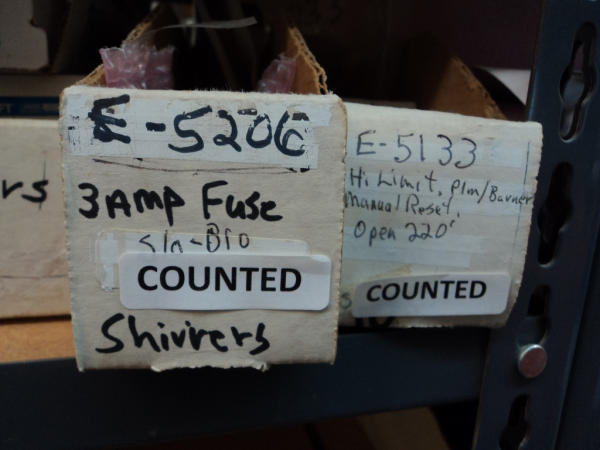 E-5206
3 Amp Fuse
Slo-Blo
COUNTED
Shivvers
E-5133
Hi Limit, Plm/Burner
Manual Reset,
Open 220°
COUNTED
rs